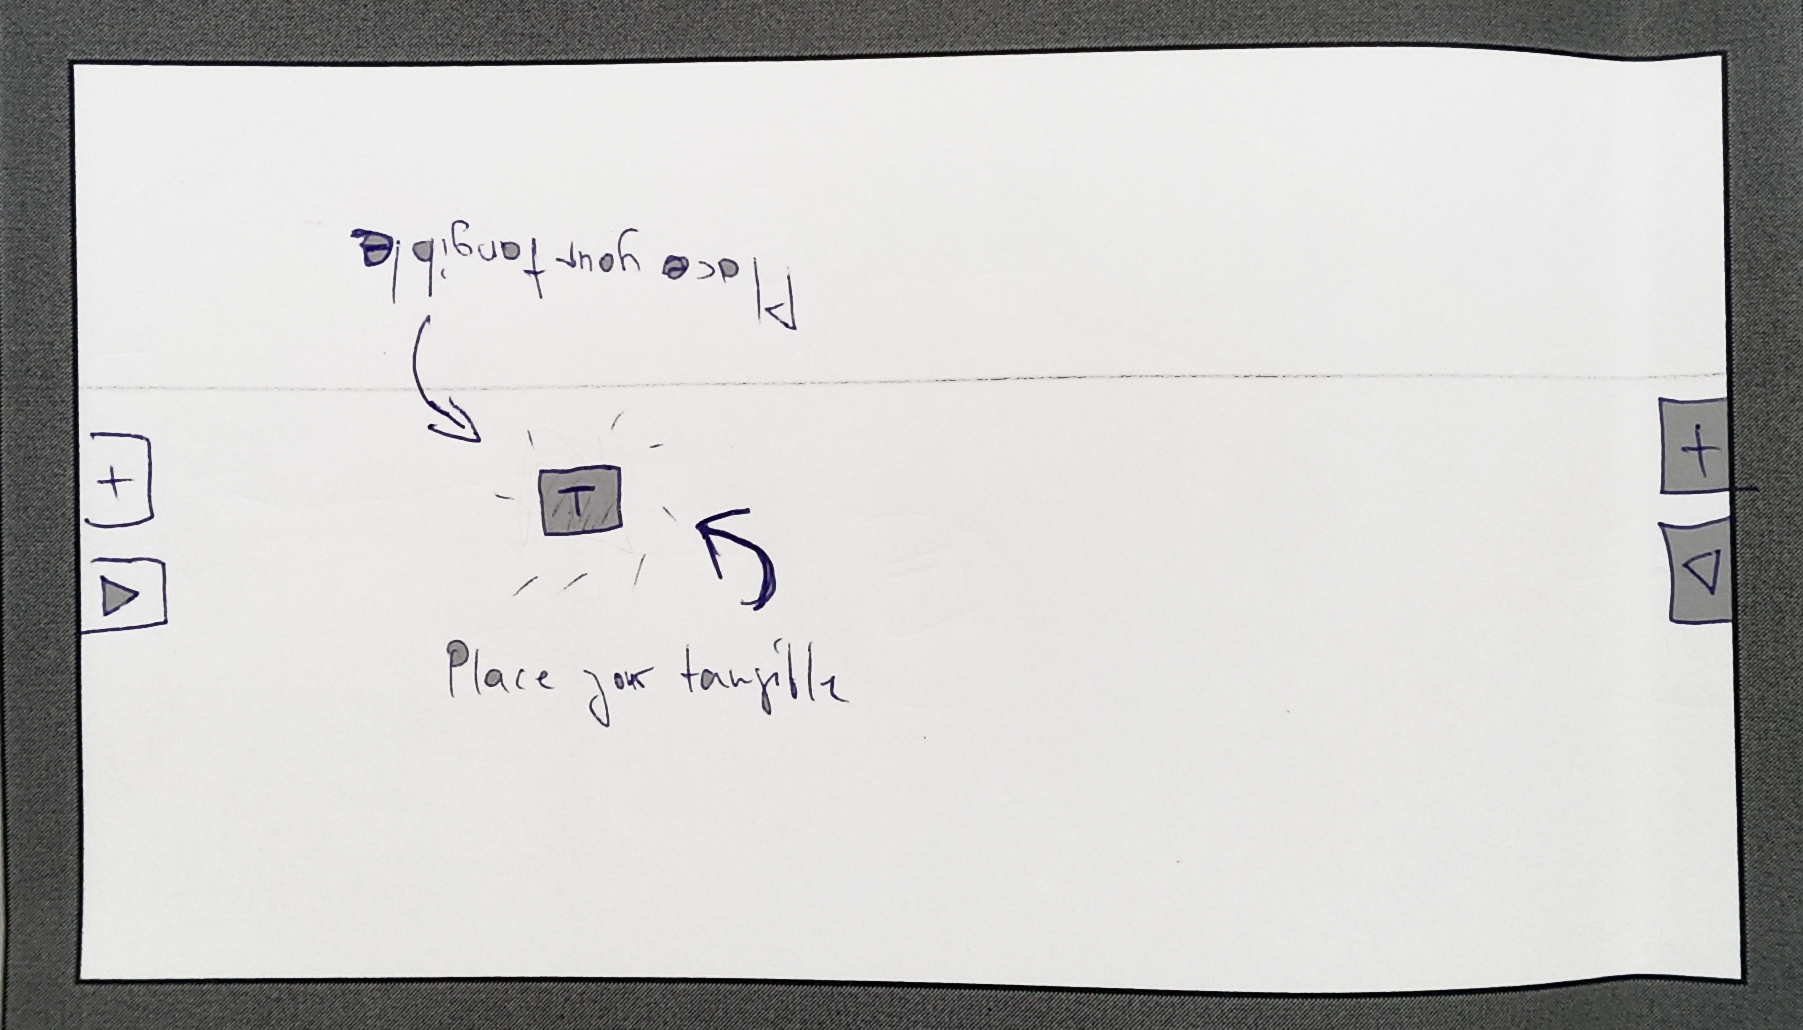 Place your tangible
+
+
T
Place your tangible